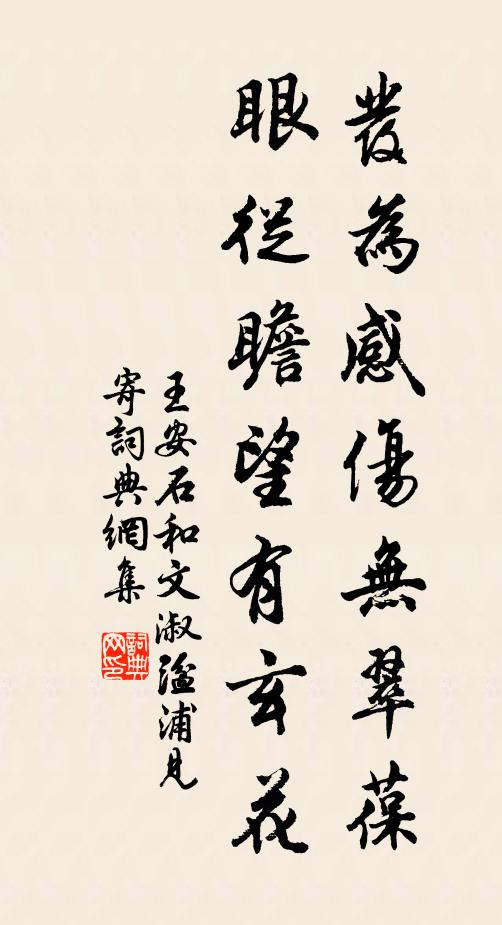 發為感傷無翠葆
眼從瞻望有玄花
王安石和文淑湓浦見
寄詞典網集
詞典網印